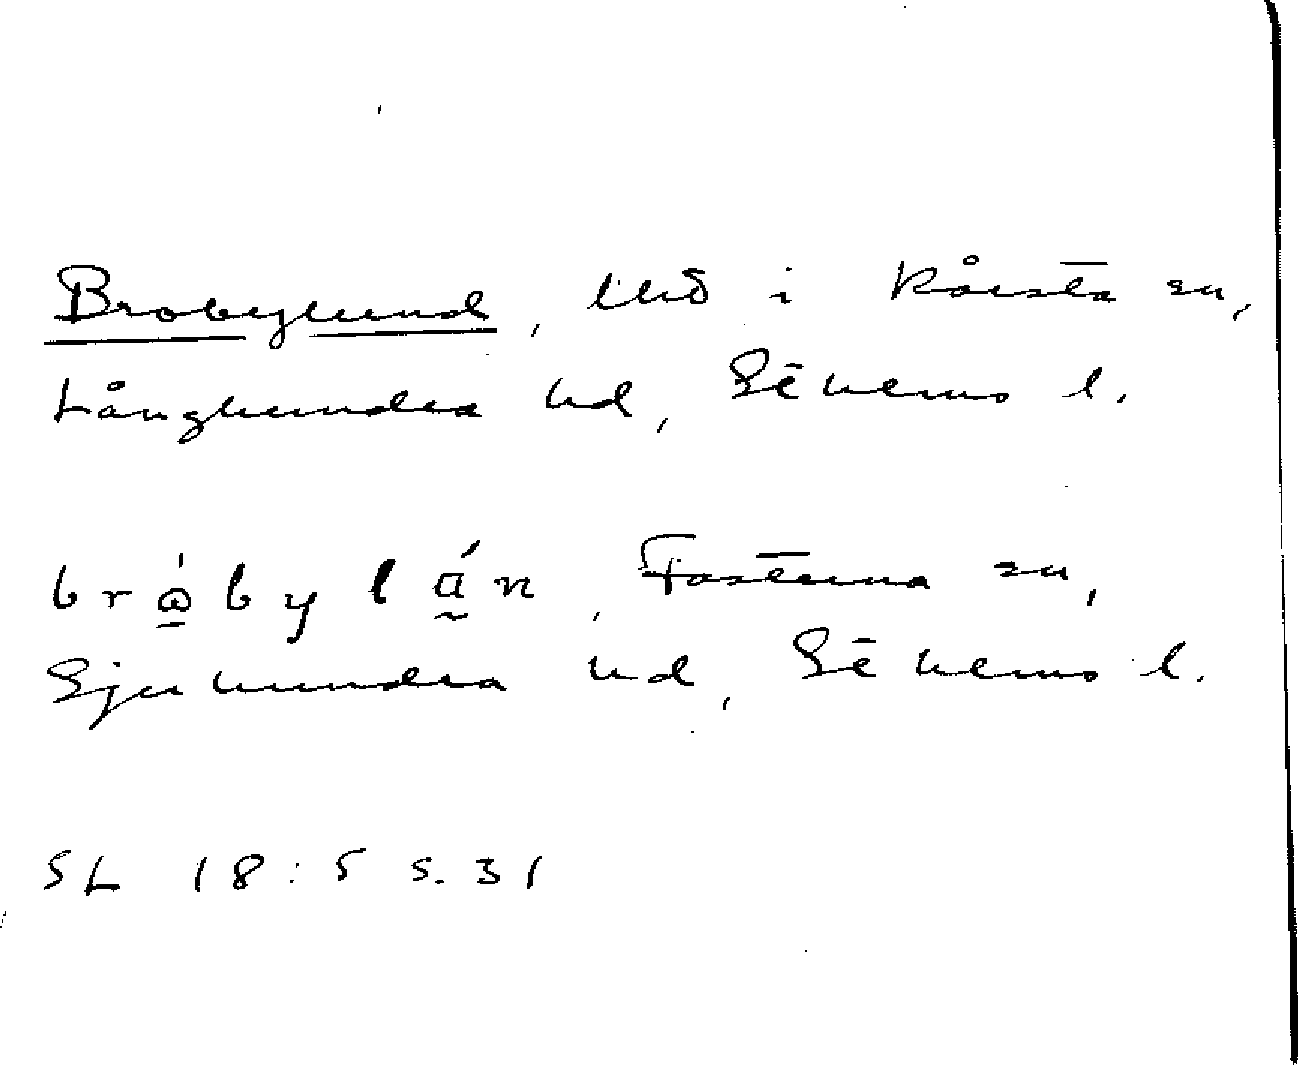 Brobylund, lhd i Kårsta sn,
Långhundra hd, Sthlms l.
bròbylán, Fasterna sn,
Sjuhundra hd, Sthlms l.
SL 18:5 s. 31